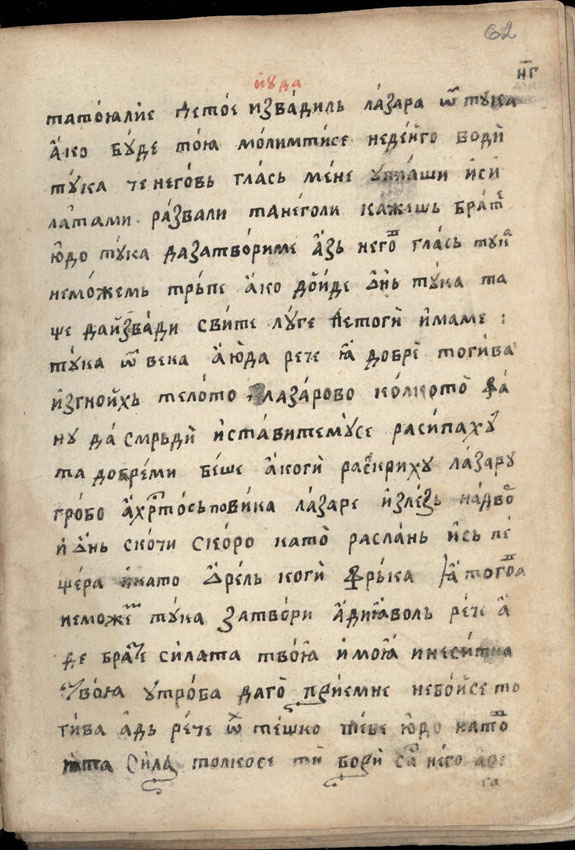 62
н҃г
июда
татоюлие детое извадиль лазара ѿ тука
ако буде тою молимтисе недеиго води
тука че неговь глась мене уплаши иси
латами развали танеголи кажешь брате
юдо тука дазатвориме азь него глась тука
неможемь трьпе ако доиде днь тука та
ще даизвади свите луге детоги имаме :
тука ѿ века аюда рече ꙗ добре тогива
изгноихь телото лазарово колкото фа
ну да смрьди иставитемусе расипаху
та добреми беше акоги раскриху лазару
гробо ахртось повика лазаре излезь надво
и днь скочи скоро като расла̀нь ись пе
щера икато орель коги фрька
неможе тука затвори адиаволь рече а
де брате силата твоꙗ имоꙗ инесита
твоꙗ утроба даго приемне небоисе то
гива адь рече ѿ тешко тебе юдо като
сила толкосе ти бори са него аре
га